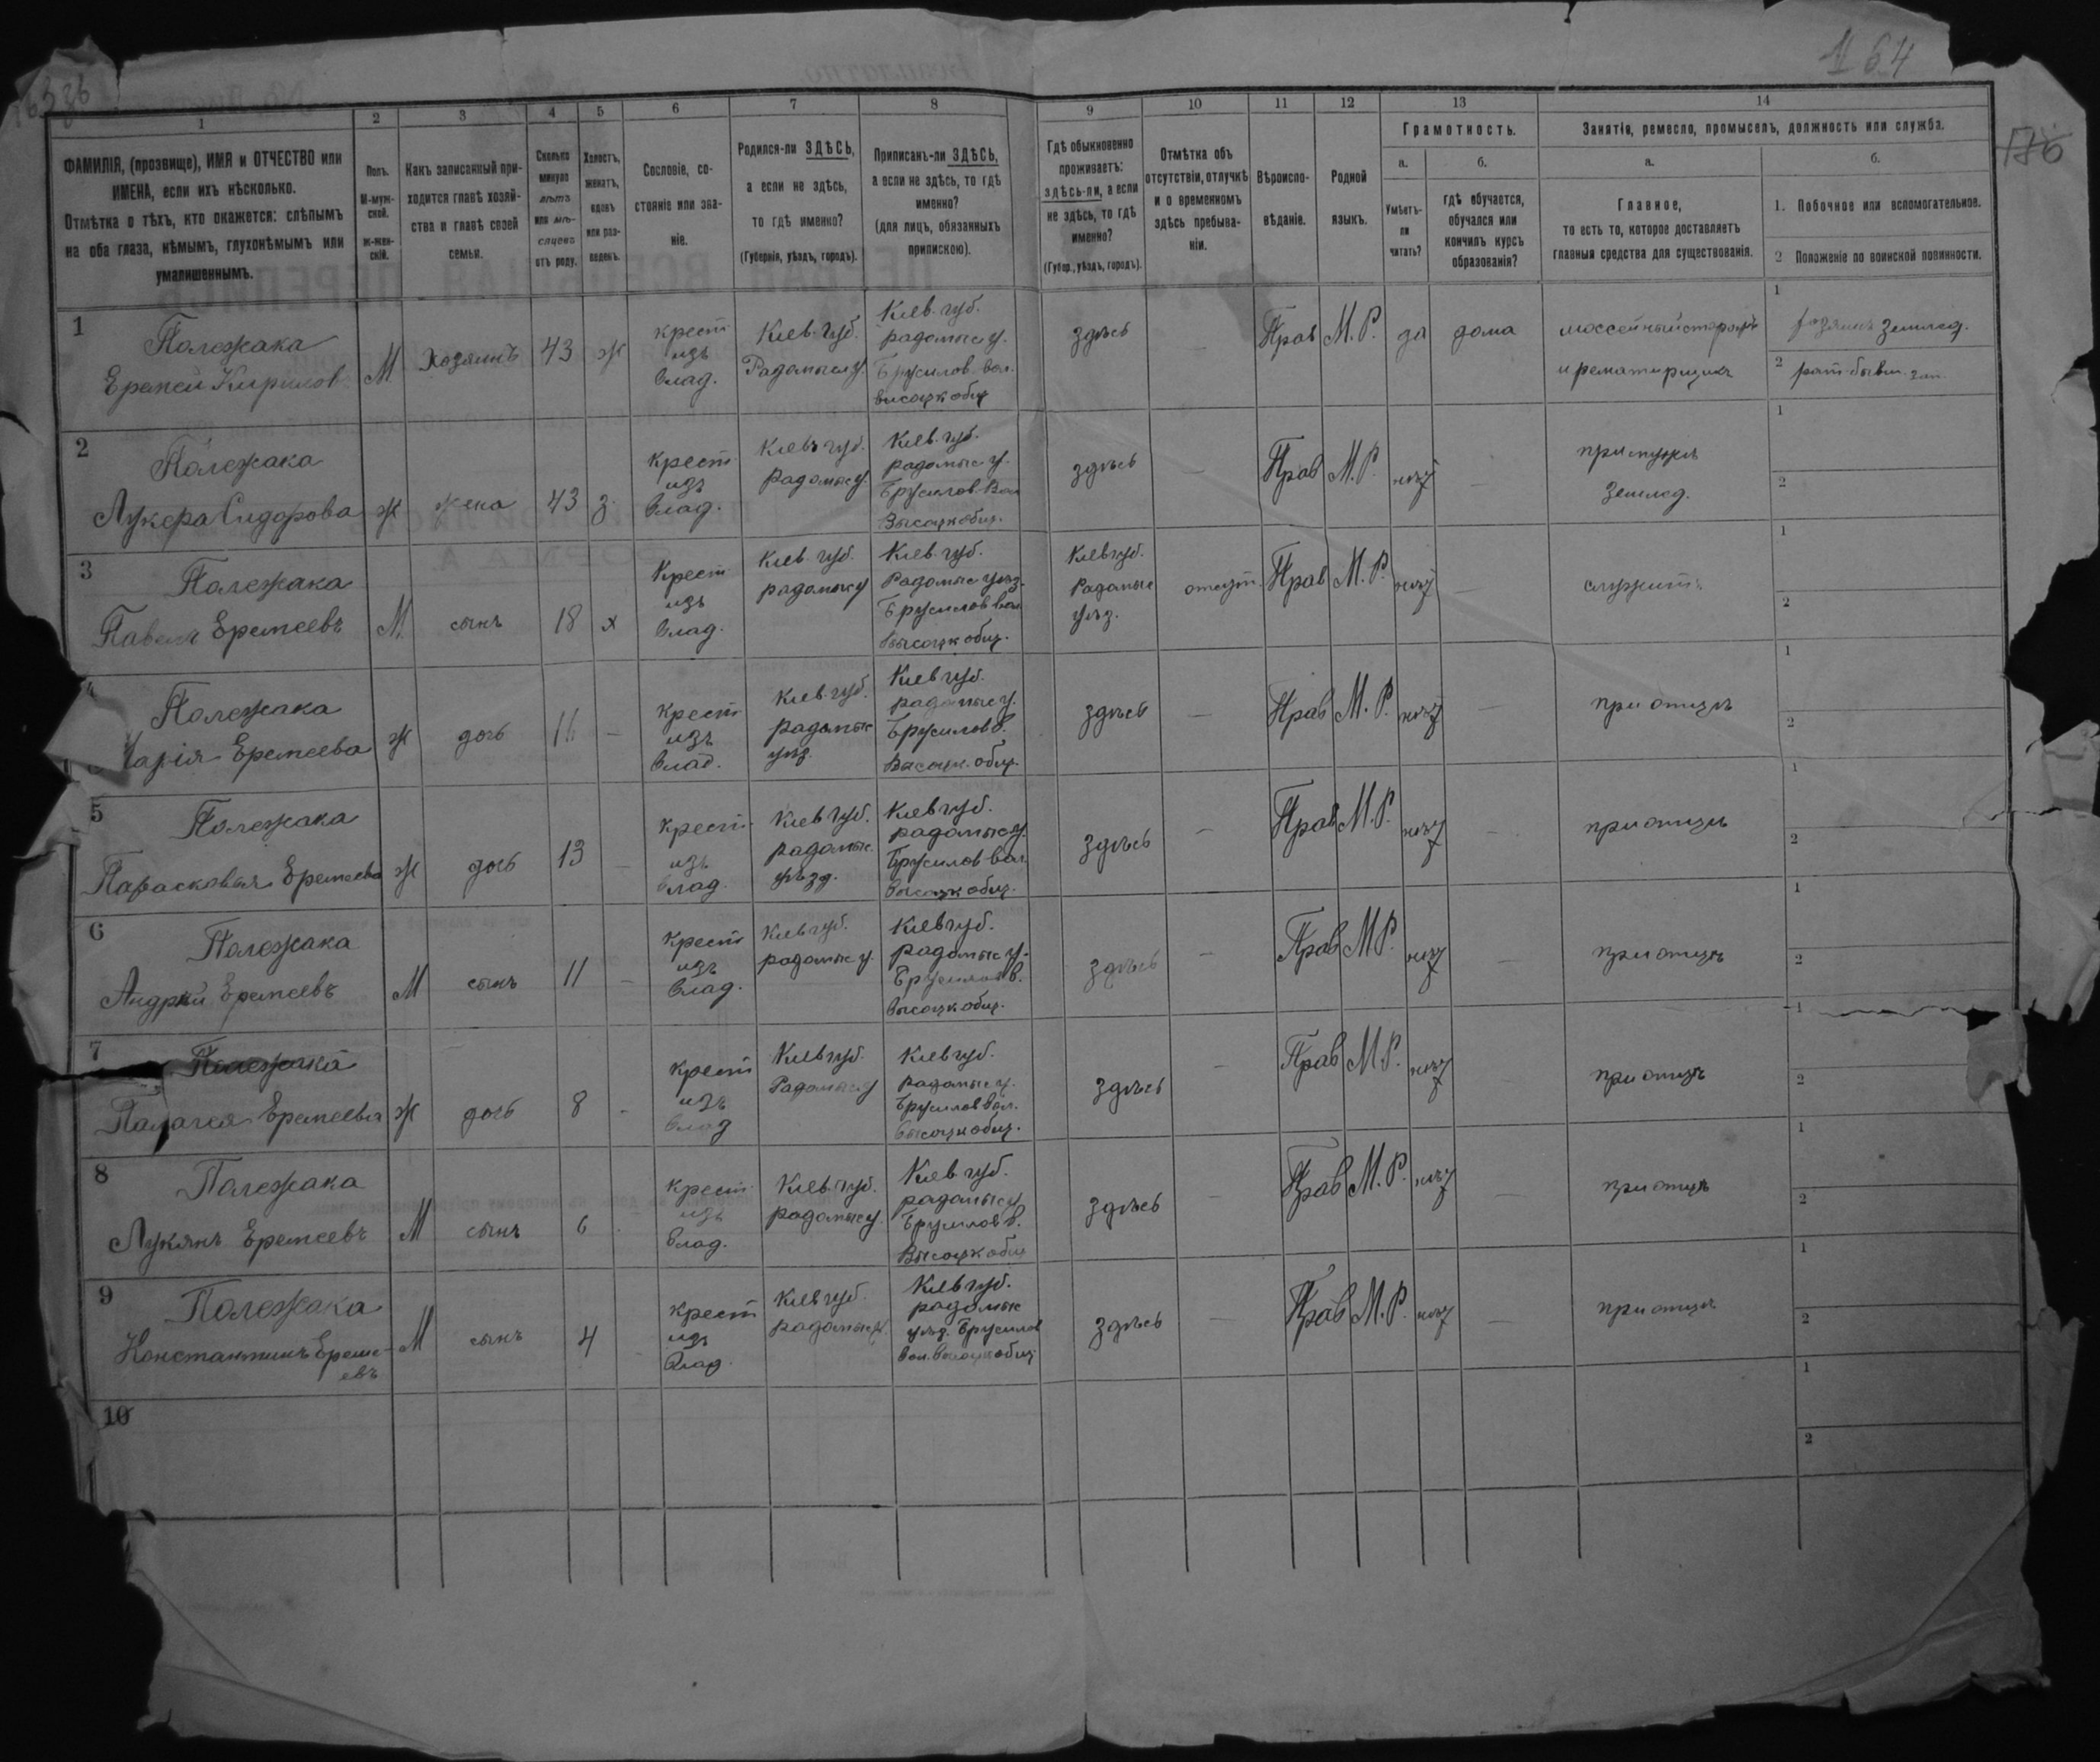 164
176
1 2 3 4 5 6 7 8 9 10 11 12 13 14
ФАМИЛІЯ, (прозвище), ИМЯ и ОТЧЕСТВО или
ИМЕНА, если ихъ нѣсколько.
Отмѣтка о тѣхъ, кто окажется: слѣпымъ
на оба глаза, нѣмымъ, глухонѣмымъ или
умалишеннымъ.
Полъ.
М-муж-
ской.
Ж-жен-
скій.
Какъ записанный при-
ходится главѣ хозяй-
ства и главѣ своей
семьи.
Сколько
минуло
лѣтъ
или мѣ-
сяцевъ
отъ роду.
Холостъ,
женатъ,
вдовъ
или раз-
веденъ.
Сословіе, со-
стояніе или зва-
ніе.
Родился-ли ЗДѢСЬ,
а если не здѣсь,
то гдѣ именно?
(Губернія, уѣздъ, городъ).
Приписанъ-ли ЗДѢСЬ,
а если не здѣсь, то гдѣ
именно?
(для лицъ, обязанныхъ
припискою).
Гдѣ обыкновенно
проживаетъ:
здѣсь-ли, а если
не здѣсь, то гдѣ
именно?
(Губер., уѣздъ, городъ).
Отмѣтка объ
отсутствіи, отлучкѣ
и о временномъ
здѣсь пребыва-
ніи.
Вѣроиспо-
вѣданіе.
Родной
языкъ.
Грамотность.
а.
Умѣетъ-
ли
читать?
б.
гдѣ обучается,
обучался или
кончилъ курсъ
образованія?
Занятіе, ремесло, промыселъ, должность или служба.
а.
Главное,
то есть то, которое доставляетъ
главныя средства для существованія.
б.
1. Побочное или вспомогательное.
2 Положеніе по воинской повинности.
1
Полежака
Еремей Кирилов
М
Хозяинъ
43
ж
крест
изъ
влад.
Кіев. губ.
Радомыс у.
Кіев. губ.
радомыс у.
Брусилов. вол.
высоцк общ
здѣсь
—
Прав
М. Р.
да
дома
1
хозяинъ землед.
2
2
Полежака
Лукера Сидорова
ж
жена
43
з.
крест
изъ
влад.
Кіевъ губ.
радомыс у.
Кіев. губ.
радомыс у.
Брусилов. Вол
Высоцк общ.
здѣсь
—
Прав
М. Р.
нѣт
—
при мужѣ
землед.
1
2
3
Полежака
Павелъ Еремеевъ
М.
сынъ
18
х
Крест
изъ
влад.
Кіев. губ.
радомыс у
Кіев. губ.
Радомыс уѣзд.
Брусилов вол
высоцк общ.
Кіев губ.
Радомыс
уѣз.
отсут.
Прав
М. Р.
нѣт
—
служитъ
1
2
4
Полежака
Марія Еремеева
ж
дочь
—
крест
изъ
влад.
Кіев. губ.
радомыс
уѣз.
Кіев губ.
радомыс у.
Брусилов в.
Высоцк. общ.
здѣсь
—
Прав
М. Р.
нѣт
—
при отцѣ
1
2
5
Полежака
Парасковья Еремеева
ж
дочь
13
—
крест
изъ
влад.
Кіев губ.
радомыс.
уѣзд.
Кіев губ.
радомыс у.
Брусилов вол
высоцк общ.
здѣсь
—
Прав
М. Р.
нѣт
—
при отцѣ
1
2
6
Полежака
Андрей Еремеевъ
М
сынъ
11
-
крест
изъ
влад.
Кіев губ.
радомыс у.
Кіев губ.
радомыс у.
Брусилов в.
высоцк общ.
здѣсь
—
Прав
М Р.
нѣт
—
при отцѣ
1
2
7
Полежака
Палагея Еремеевa
ж
дочь
8
-
крест
изъ
влад
Кіев губ.
Радомыс у
Кіев губ.
радомыс у.
Брусилов вол.
высоцк общ.
здѣсь
—
Прав
М. Р.
нѣт
при отцѣ
1
2
8
Полежака
Лукянъ Еремеевъ
М
сынъ
6
крест
изъ
влад.
Кіев губ.
радомыс у.
Кіев губ.
радомыс у
Брусилов в.
Высоцк общ
здѣсь
—
Прав
М. Р.
нѣт
—
при отцѣ
1
2
9
Полежака
Константинъ Ереме-
евъ
М
сынъ
4
крест
изъ
влад.
Кіев губ.
радомыс у.
Кіев губ.
радомыс
уѣз. Брусилов
вол. высоцк общ
здѣсь
—
Прав
М. Р.
нѣт
—
при отцѣ
1
2
10
1
2